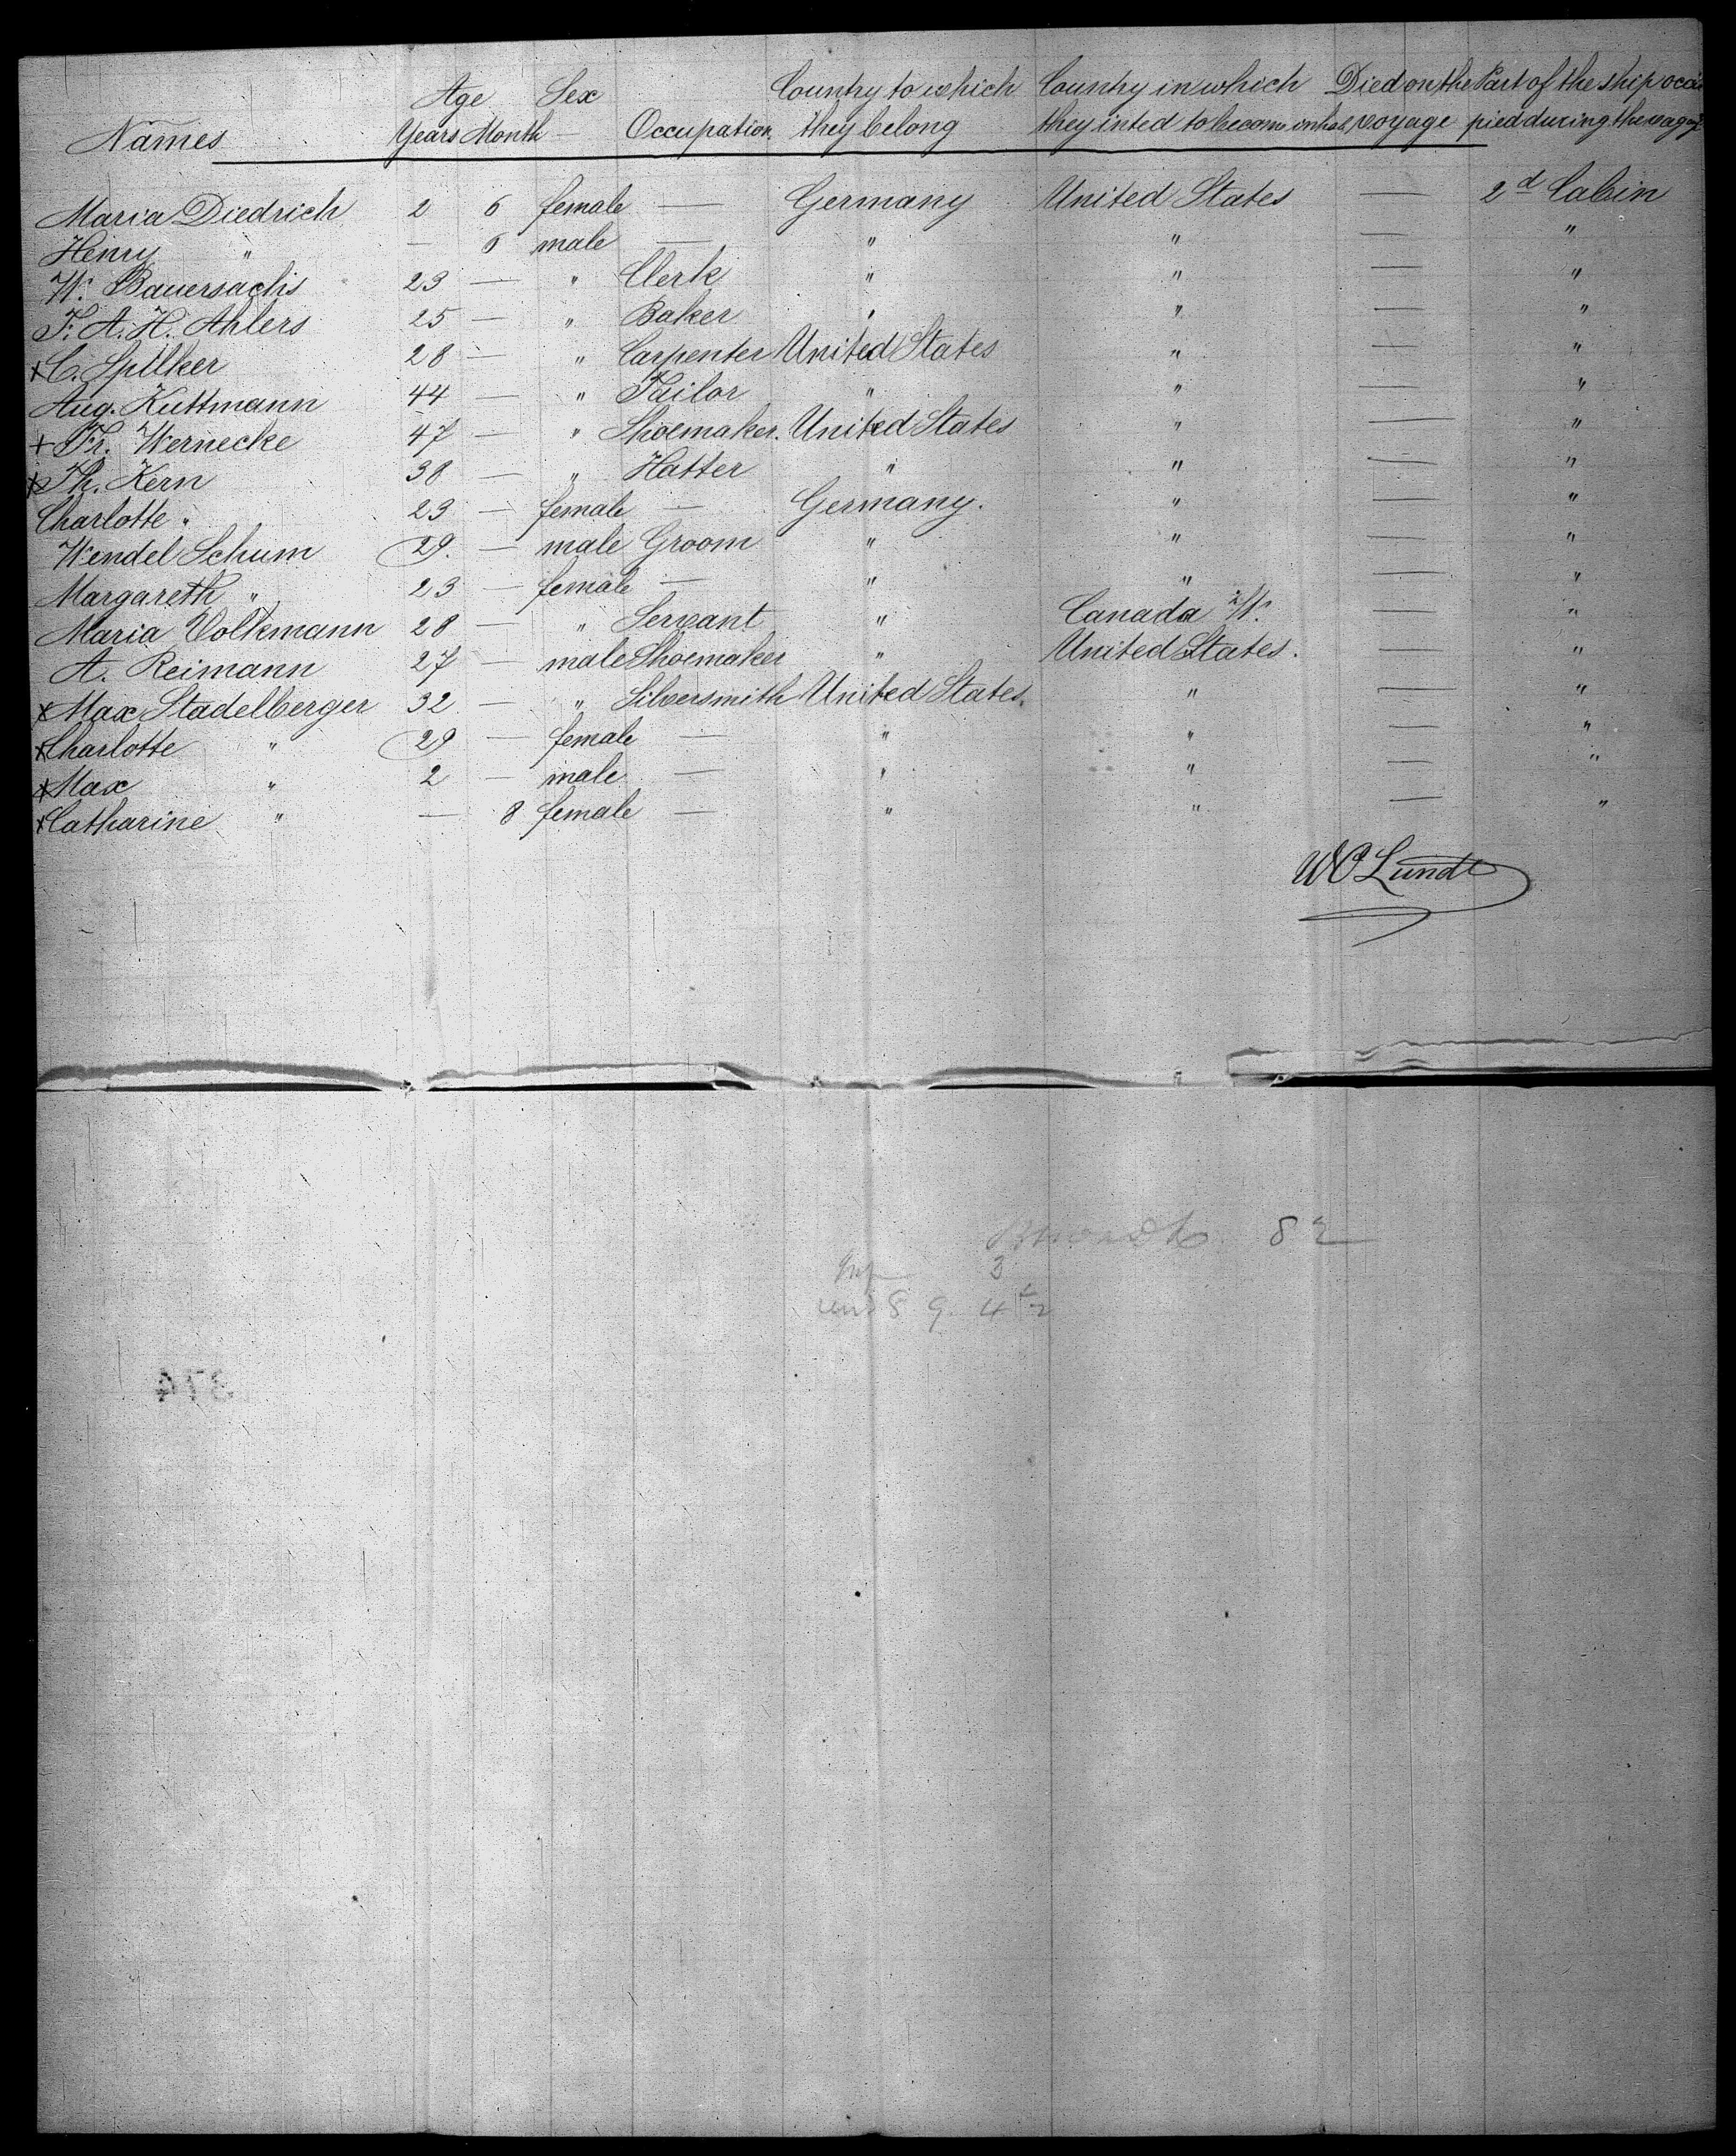 Age Sex Country to which Country in which Died on the Part of the ship occu
Names Years Month — Occupation they belong they inted to become inhab. voyage pied during the
Maria Diedrich 2 6 female — Germany United States — 2d Cabin
Henry " — 6 male — " " — "
W. Bauersachs 23 — " Clerk " " — "
F. A. H. Ahlers 25 — " Baker " " — "
x C. Spilker 28 — " Carpenter United States " — "
Aug. Kuttmann 44 — " Tailor " " — "
+ Fr. Wernecke 47 — " Shoemaker. United States " — "
x Th. Kern 38 — " Hatter " " — "
Charlotte " 23 — female — Germany. " — "
Wendel Schum 29. — male Groom " " — "
Margareth " 23 — female — " " — "
Maria Volkmann 28 — " Servant " Canada W. — "
A. Reimann 27 — male Shoemaker " United States. — "
x Max Stadelberger 32 — " Silversmith United States. " — "
x Charlotte " 29 — female — " " — "
x Max " 2 — male — " " — "
x Catharine " — 8 female — " " — "
Lundt
82
3
8 9. 4
374